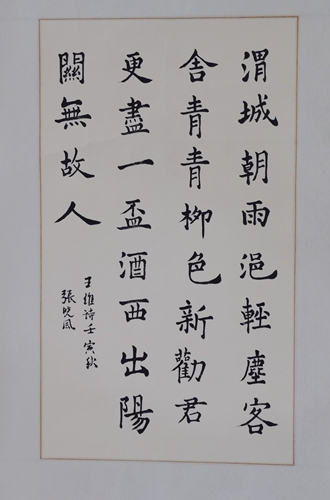 渭城朝雨浥輕塵客
舍青青柳色新勸君
更盡一盃酒西出陽
關無故人
王維詩壬寅秋
張晚風